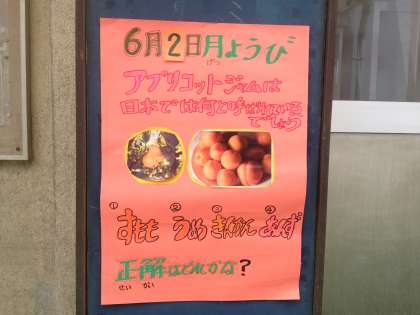 6月2日月ようび
げつ
アプリコットジャムは
日本では何と呼ばれている
でしょう
① ② ③ ④
すもも うめ きんかん あんず
正解はどれかな?
せい かい